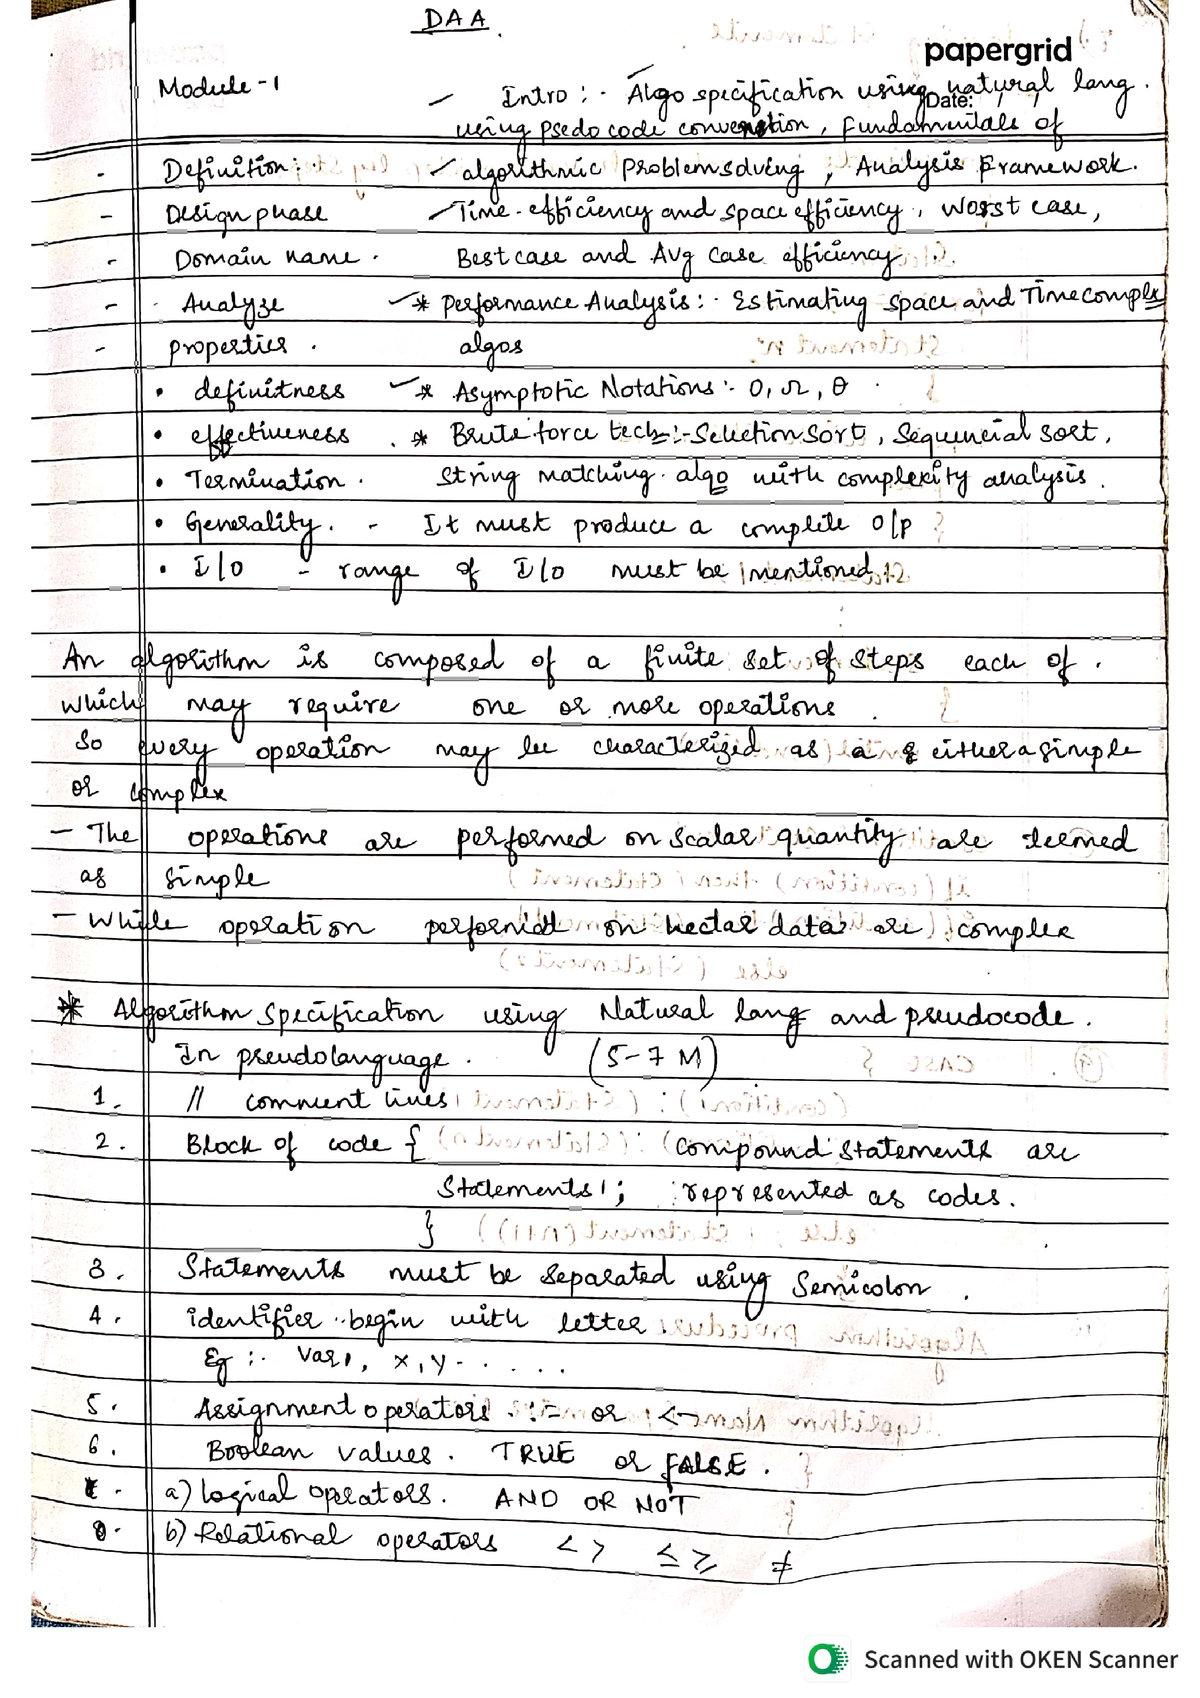 DAA
papergrid
Date: / /
Module-1
Intro :- Algo specification using natural lang.
using psedo code convenstion, Fundamentals of
- Definition: algorithmic Problem solving, Analysis Framework.
- Design phase Time-efficiency and space efficiency, worst case,
- Domain name. Best case and Avg case efficiency.
- Analyze * Performance Analysis:- Estimating space and Time complex
- properties. algos
• definitness * Asymptotic Notations:- O, Ω, θ
• effectiveness * Brute force tech:- Selection sort, Sequencial sort,
• Termination. String matching algo with complexity analysis.
• Generality. - It must produce a complete O/p
• I/O - range of I/O must be mentioned
An algorithm is composed of a finite set of steps each of.
which may require one or more operations.
So every operation may be characterized as a either a simple
or complex
- The operations are performed on scalar quantity are deemed
as simple
- While operation performed on vectar data are complex
* Algorithm Specification using Natural lang and pseudocode.
In pseudolanguage. (5-7 M)
1. // comment lines
2. Block of code { (compound Statements are
Statements1; represented as codes.
}
3. Statements must be separated using Semicolon.
4. identifier begin with letter.
Eg :- Var1, x, y - . . . .
5. Assignment operators. := or <-
6. Boolean values. TRUE or FALSE.
a) Logical operators. AND OR NOT
8. b) Relational operators < > ≤ ≥ ≠
Scanned with OKEN Scanner